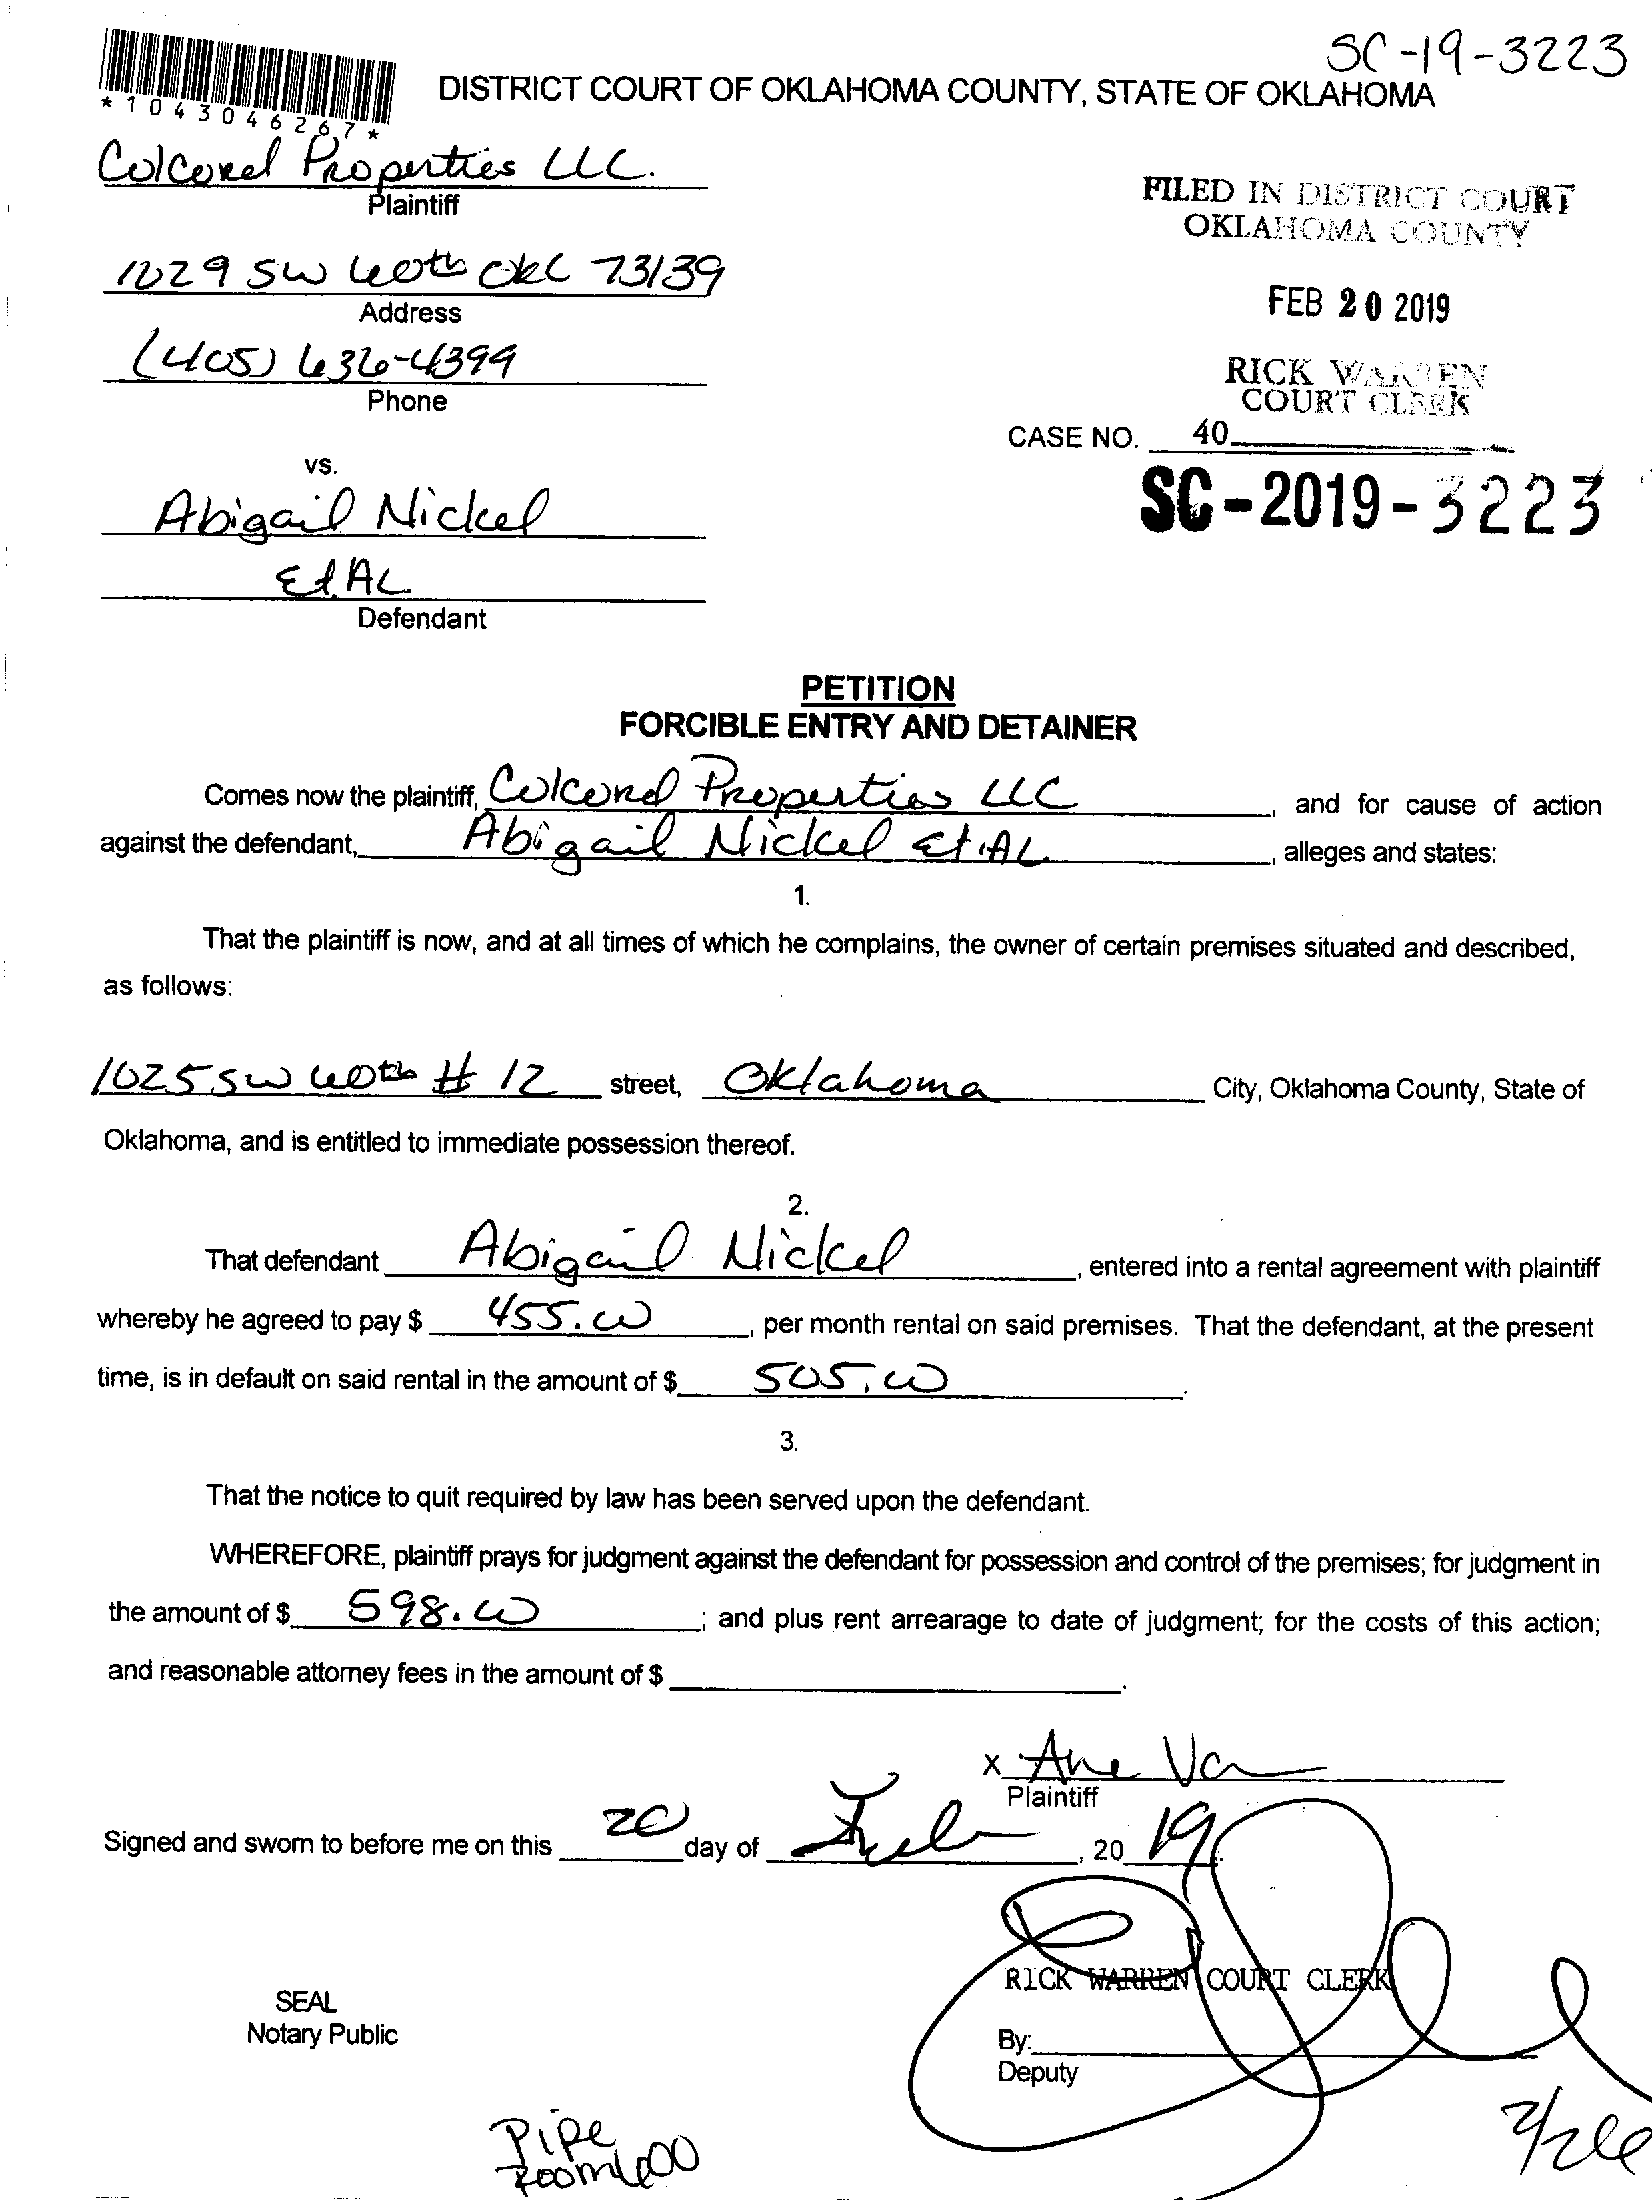 SC-19-3223
*1043046267*
DISTRICT COURT OF OKLAHOMA COUNTY, STATE OF OKLAHOMA
Colcord Properties LLC.
Plaintiff
FILED IN DISTRICT COURT
OKLAHOMA COUNTY
1029 SW 60th OKC 73139
Address
FEB 20 2019
(405) 636-4399
Phone
RICK WARREN
COURT CLERK
CASE NO. 40
vs.
SC-2019-3223
Abigail Nickel
Et. AL
Defendant
PETITION
FORCIBLE ENTRY AND DETAINER
Comes now the plaintiff, Colcord Properties LLC, and for cause of action
against the defendant, Abigail Nickel Et. AL, alleges and states:
1.
That the plaintiff is now, and at all times of which he complains, the owner of certain premises situated and described,
as follows:
1025 SW 60th # 12 street, Oklahoma City, Oklahoma County, State of
Oklahoma, and is entitled to immediate possession thereof.
2.
That defendant Abigail Nickel, entered into a rental agreement with plaintiff
whereby he agreed to pay $ 455.00, per month rental on said premises. That the defendant, at the present
time, is in default on said rental in the amount of $ 505.00.
3.
That the notice to quit required by law has been served upon the defendant.
WHEREFORE, plaintiff prays for judgment against the defendant for possession and control of the premises; for judgment in
the amount of $ 598.00; and plus rent arrearage to date of judgment; for the costs of this action;
and reasonable attorney fees in the amount of $ .
x
Plaintiff
Signed and sworn to before me on this 20 day of Feb, 2019.
RICK WARREN COURT CLERK
SEAL
Notary Public
By:
Deputy
Pipe
Room 600
2/26